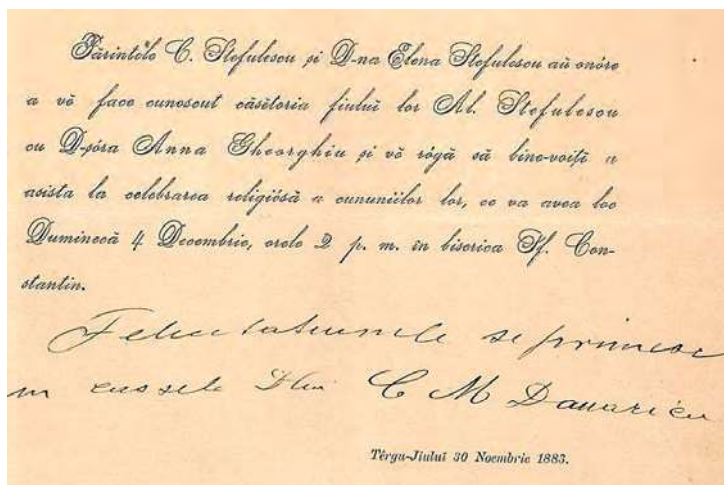 Părintele C. Stefulescu și D-na Elena Stefulescu aŭ onóre
a vĕ face cunoscut căsĕtoria fiuluĭ lor Al. Stefulescu
cu D-șóra Anna Gheorghiu și vĕ rógă să bine-voițĭ a
asista la celebrarea religiósă a cununiilor lor, ce va avea loc
Duminecă 4 Decembrie, orele 2 p. m. în biserica Sf. Con-
stantin.
Felicitatiunile se primesc
in cassele Dlui C M Danaricu
Tĕrgu-Jiuluĭ 30 Noembrie 1883.